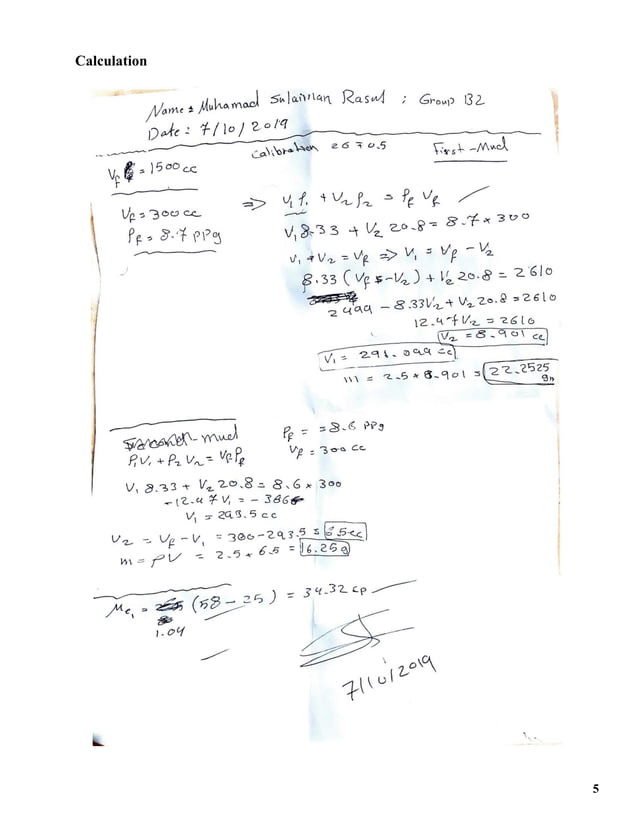 Calculation
Name: Muhamad Sulaiman Rasul ; Group B2
Date: 7/10/2019
Calibration 26705
First-Mud
Vf = 1500cc
Vf = 300cc
Pf = 8.7 PPg
=> V1P1 + V2P2 = Pf Vf
V1 8.33 + V2 20.8 = 8.7 × 300
V1 + V2 = Vf => V1 = Vf - V2
8.33 (Vf - V2) + V2 20.8 = 2610
2499 - 8.33V2 + V2 20.8 = 2610
12.47V2 = 2610
V2 = 8.901 cc
V1 = 291.099 cc
m = 2.5 * 8.901 = 22.2525 gm
mud
Pf = = 8.6 PPg
Vf = 300 cc
P1V1 + P2V2 = VfPf
V1 8.33 + V2 20.8 = 8.6 * 300
-12.47V1 = - 3866
V1 = 293.5 cc
V2 = Vf - V1 = 300 - 293.5 = 6.5cc
m = ρV = 2.5 * 6.5 = 16.25g
Me1 = (58 - 25) = 34.32 cp
1.04
7/10/2019
5